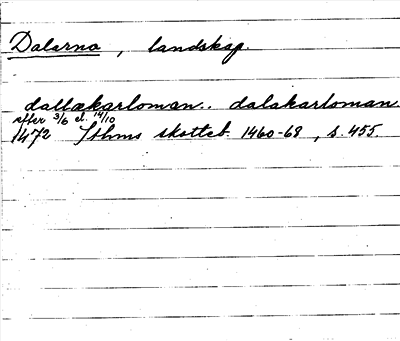 Dalarna, landskap.
dallækarloman.. dalakarloman
efter 3/6 el. 14/10
1472 Sthms skotteb. 1460-68, s. 455.